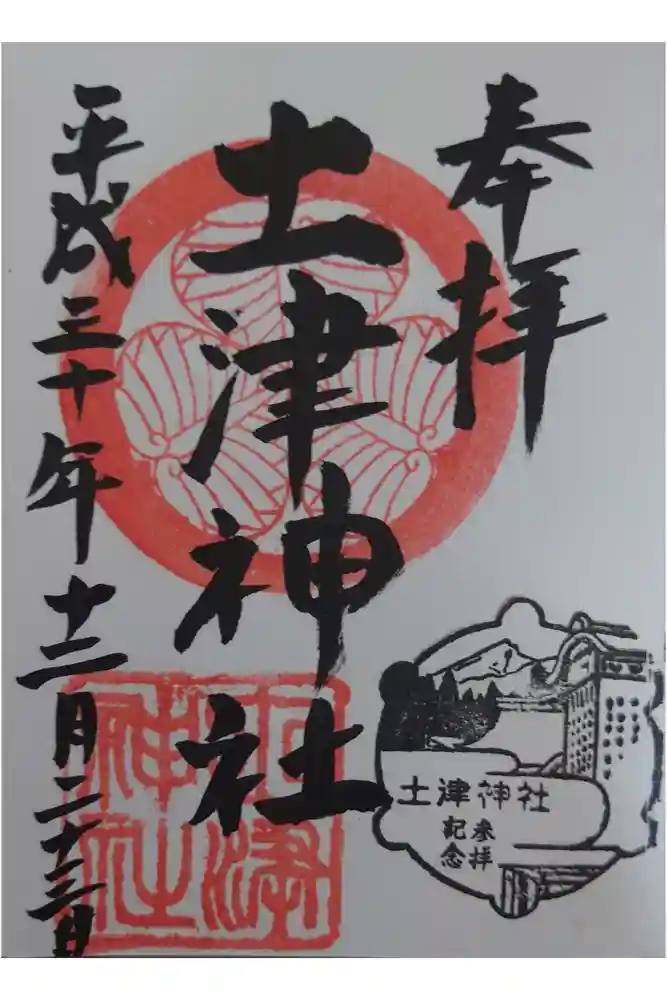 奉拝
土津神社
平成三十年十二月二十三日
土津神社
土津神社
参拝
記念